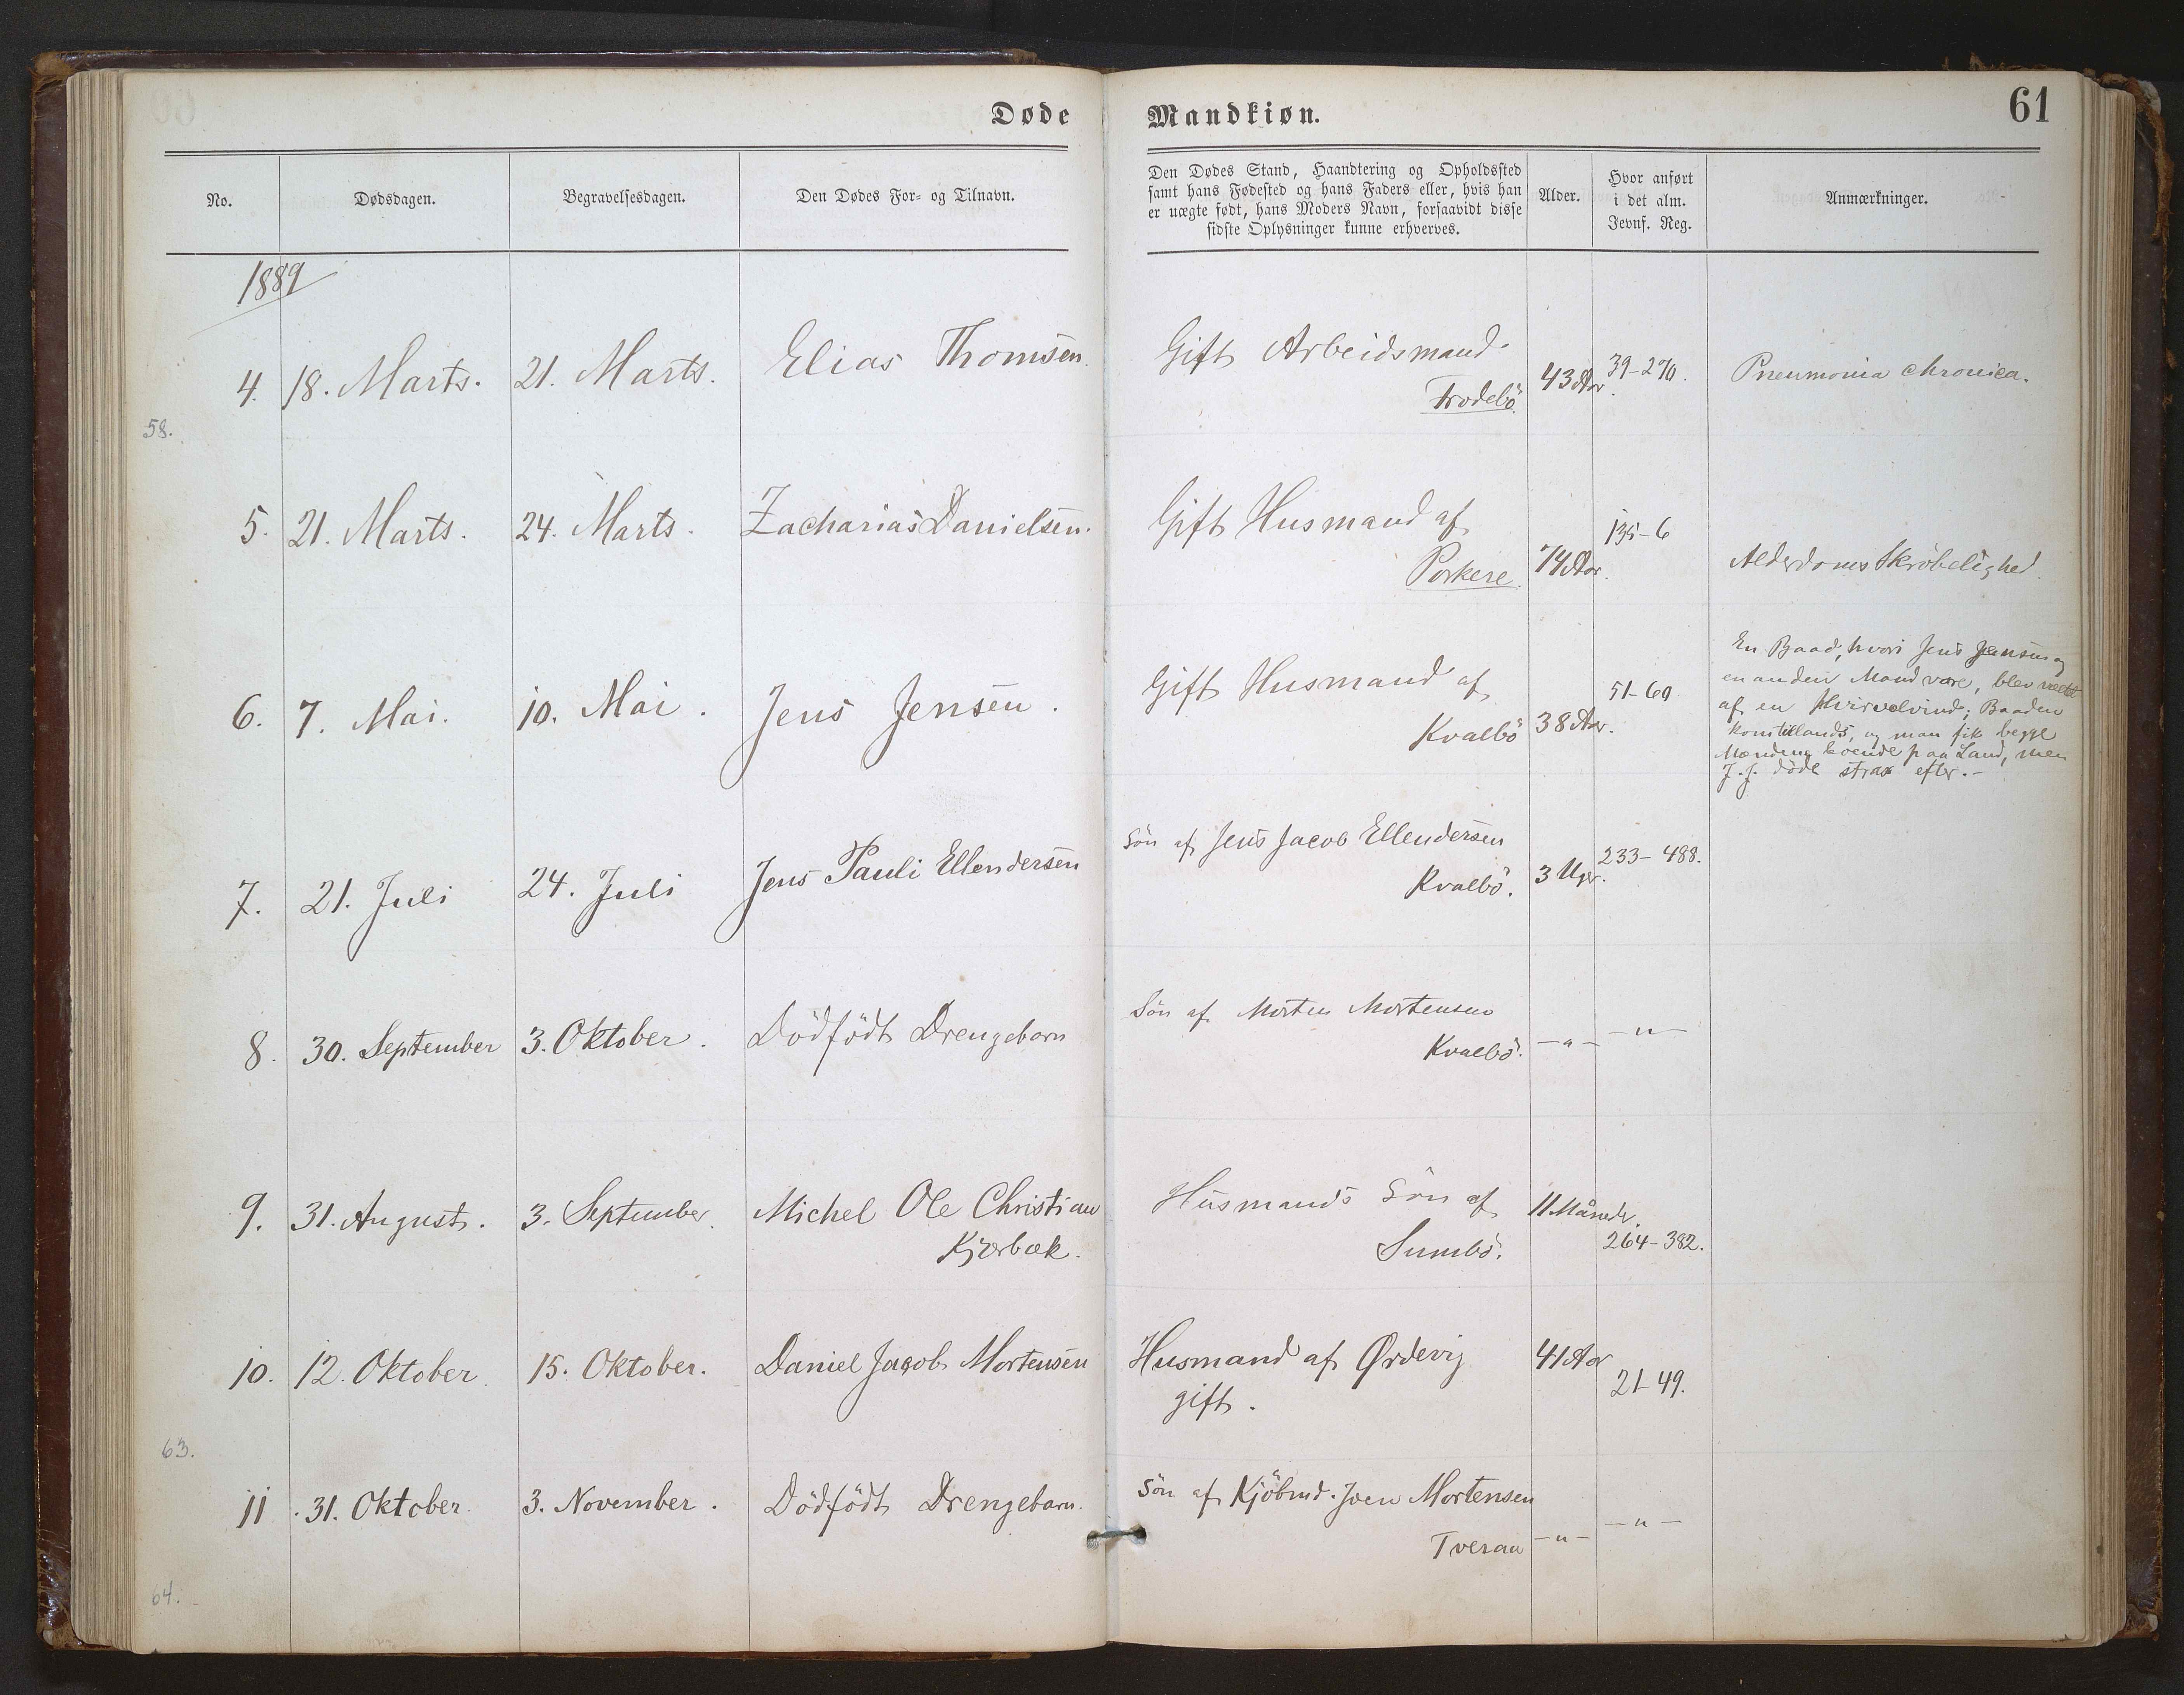 Døde Mandkiøn. 61
No. Dødsdagen. Begravelsesdagen. Den Dødes For- og Tilnavn.
Den Dødes Stand, Haandtering og Opholdssted
samt hans Fødested og hans Faders eller, hvis han
er uægte født, hans Moders Navn, forsaavidt disse
sidste Oplysninger kunne erhverves.
Alder.
Hvor anført
i det alm.
Jevnf. Reg.
Anmærkninger.
1889
4. 18. Marts. 21. Marts. Elias Thomsen.
Gift Arbeidsmand
Frodebö.
43 Aar. 39-270. Pneumonia chronica.
58.
5. 21. Marts. 24. Marts. Zacharias Danielsen.
Gift Husmand af
Porkere.
74 Aar. 135-6 Alderdoms Skröbelighed.
6. 7. Mai. 10. Mai. Jens Jensen.
Gift Husmand af
Kvalbö
38 Aar. 51-60
En Baad, hvori Jens Jensen og
en anden Mand vare, blev væltet
af en Hvirvelvind; Baaden
kom tillands, og man fik begge
Mændene levende paa Land, men
J. J. döde strax efter.-
7. 21. Juli 24. Juli Jens Pauli Ellendersen
Sön af Jens Jacob Ellendersen
Kvalbö.
3 Uger. 233-488.
8. 30. September 3. Oktober. Dödfödt Drengebarn
Sön af Morten Mortensen
Kvalbö.
-"- -"-
9. 31. August. 3. September. Michel Ole Christian
Kjærbæk.
Husmands Sön af
Sumbö.
11 Måneder.
264-382.
10. 12. Oktober. 15. Oktober. Daniel Jacob Mortensen
Husmand af Ørdevig
gift.
41 Aar
21-49.
63.
11. 31. Oktober. 3. November. Dödfödt Drengebarn.
Sön af Kjöbmd. Joen Mortensen
Tveraa
-"- -"-
64.